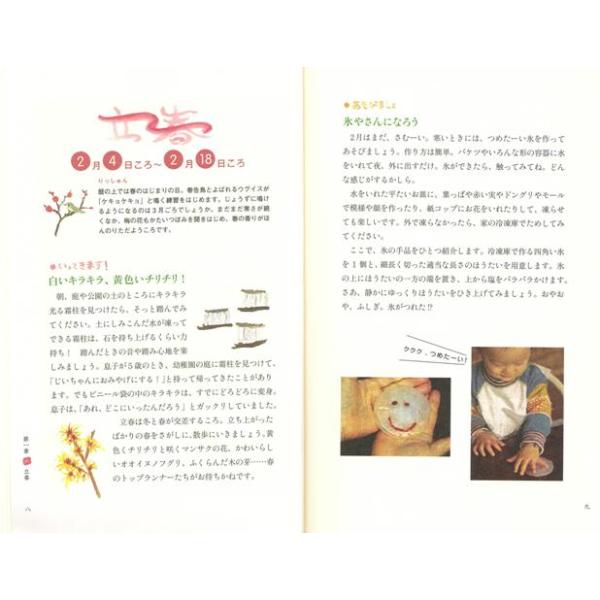 立春
2月4日ころ〜2月18日ころ
りっしゅん
暦の上では春のはじまりの日。春告鳥とよばれるウグイスが
「ケキョケキョ」と鳴く練習をはじめます。じょうずに鳴け
るようになるのは3月ごろでしょうか。まだまだ寒さが続
くなか、梅の花もかたいつぼみを開きはじめ、春の香りがほ
んのりただようころです。
いってきます!
白いキラキラ、黄色いチリチリ!
朝、庭や公園の土のところにキラキラ
光る霜柱を見つけたら、そっと踏んでみ
てください。土にしみこんだ水が凍って
できる霜柱は、石を持ち上げるくらい力
持ち! 踏んだときの音や踏み心地を楽
しみましょう。息子が5歳のとき、幼稚園の庭に霜柱を見つけて、
「じいちゃんにおみやげにする!」と持って帰ってきたことがあり
ます。でもビニール袋の中のキラキラは、すでにどろどろに変身。
息子は、「あれ、どこにいったんだろう」とガックリしていました。
立春は冬と春が交差するころ。立ち上がった
ばかりの春をさがしに、散歩にいきましょう。黄
色くチリチリと咲くマンサクの花、かわいらし
いオオイヌノフグリ、ふくらんだ木の芽……春
のトップランナーたちがお待ちかねです。
第一章 春 立春
八
あそびましょ
氷やさんになろう
2月はまだ、さむーい。寒いときには、つめたーい氷を作って
あそびましょう。作り方は簡単。バケツやいろんな形の容器に水
を入れて夜、外に出すだけ。氷ができたら、触ってみてね。どん
な感じがするかしら。
水をいれた平たいお皿に、葉っぱや赤い実やドングリやモール
で模様や顔を作ったり、紙コップにお花をいれたりして、凍らせ
ても楽しいです。外で凍らなかったら、家の冷凍庫でためしてみ
てください。
ここで、氷の手品をひとつ紹介します。冷凍庫で作る四角い氷
を1個と、細長く切った適当な長さのほうたいを用意します。氷
の上にほうたいの一方の端を置き、上から塩をパラパラかけます。
さあ、静かにゆっくりほうたいをひき上げてみましょう。おやお
や、ふしぎ。氷がつれた!?
ウウウ、つめたーい!
九